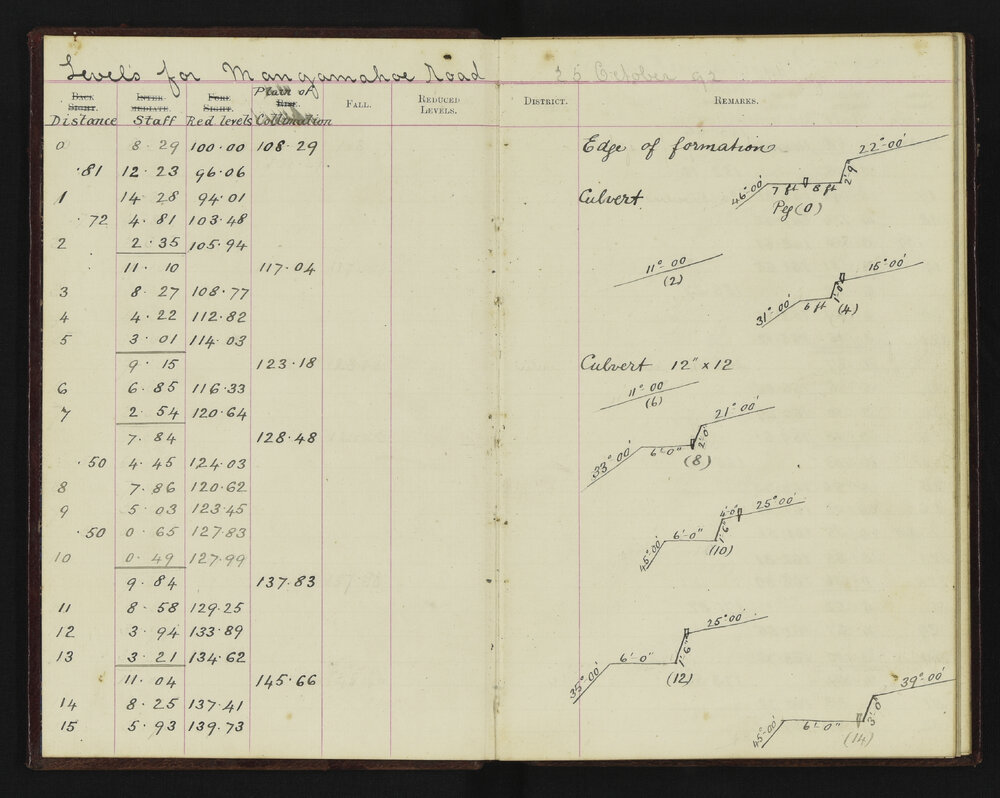 Levels for Mangamahoe Road
25 October 92
Back Sight. Inter- mediate. Fore Sight. Plain of Rise. Fall. Reduced Levels. District. Remarks.
Distance Staff Red. levels Collimation
0 8·29 100·00 108·29 Edge of formation
·81 12·23 96·06
1 14·28 94·01 Culvert
·72 4·81 103·48
2 2·35 105·94
11·10 117·04
3 8·27 108·77
4 4·22 112·82
5 3·01 114·03
9·15 123·18 Culvert 12" x 12
6 6·85 116·33
7 2·54 120·64
7·84 128·48
·50 4·45 124·03
8 7·86 120·62
9 5·03 123·45
·50 0·65 127·83
10 0·49 127·99
9·84 137·83
11 8·58 129·25
12 3·94 133·89
13 3·21 134·62
11·04 145·66
14 8·25 137·41
15 5·93 139·73
46°·00' 7 ft 8 ft 2'·6" 22°·00'
Peg (0)
11°·00
(2)
31°·00' 6 ft 1'·0" 15°·00'
(4)
11°·00
(6)
33°·00' 6'·0" 2'·0" 21°·00'
(8)
45°·00' 6'·0" 1'·6" 4'·0" 25°·00'
(10)
35°·00' 6'·0" 1'·6" 25°·00'
(12)
45°·00' 6'·0" 3'·0" 39°·00'
(14)